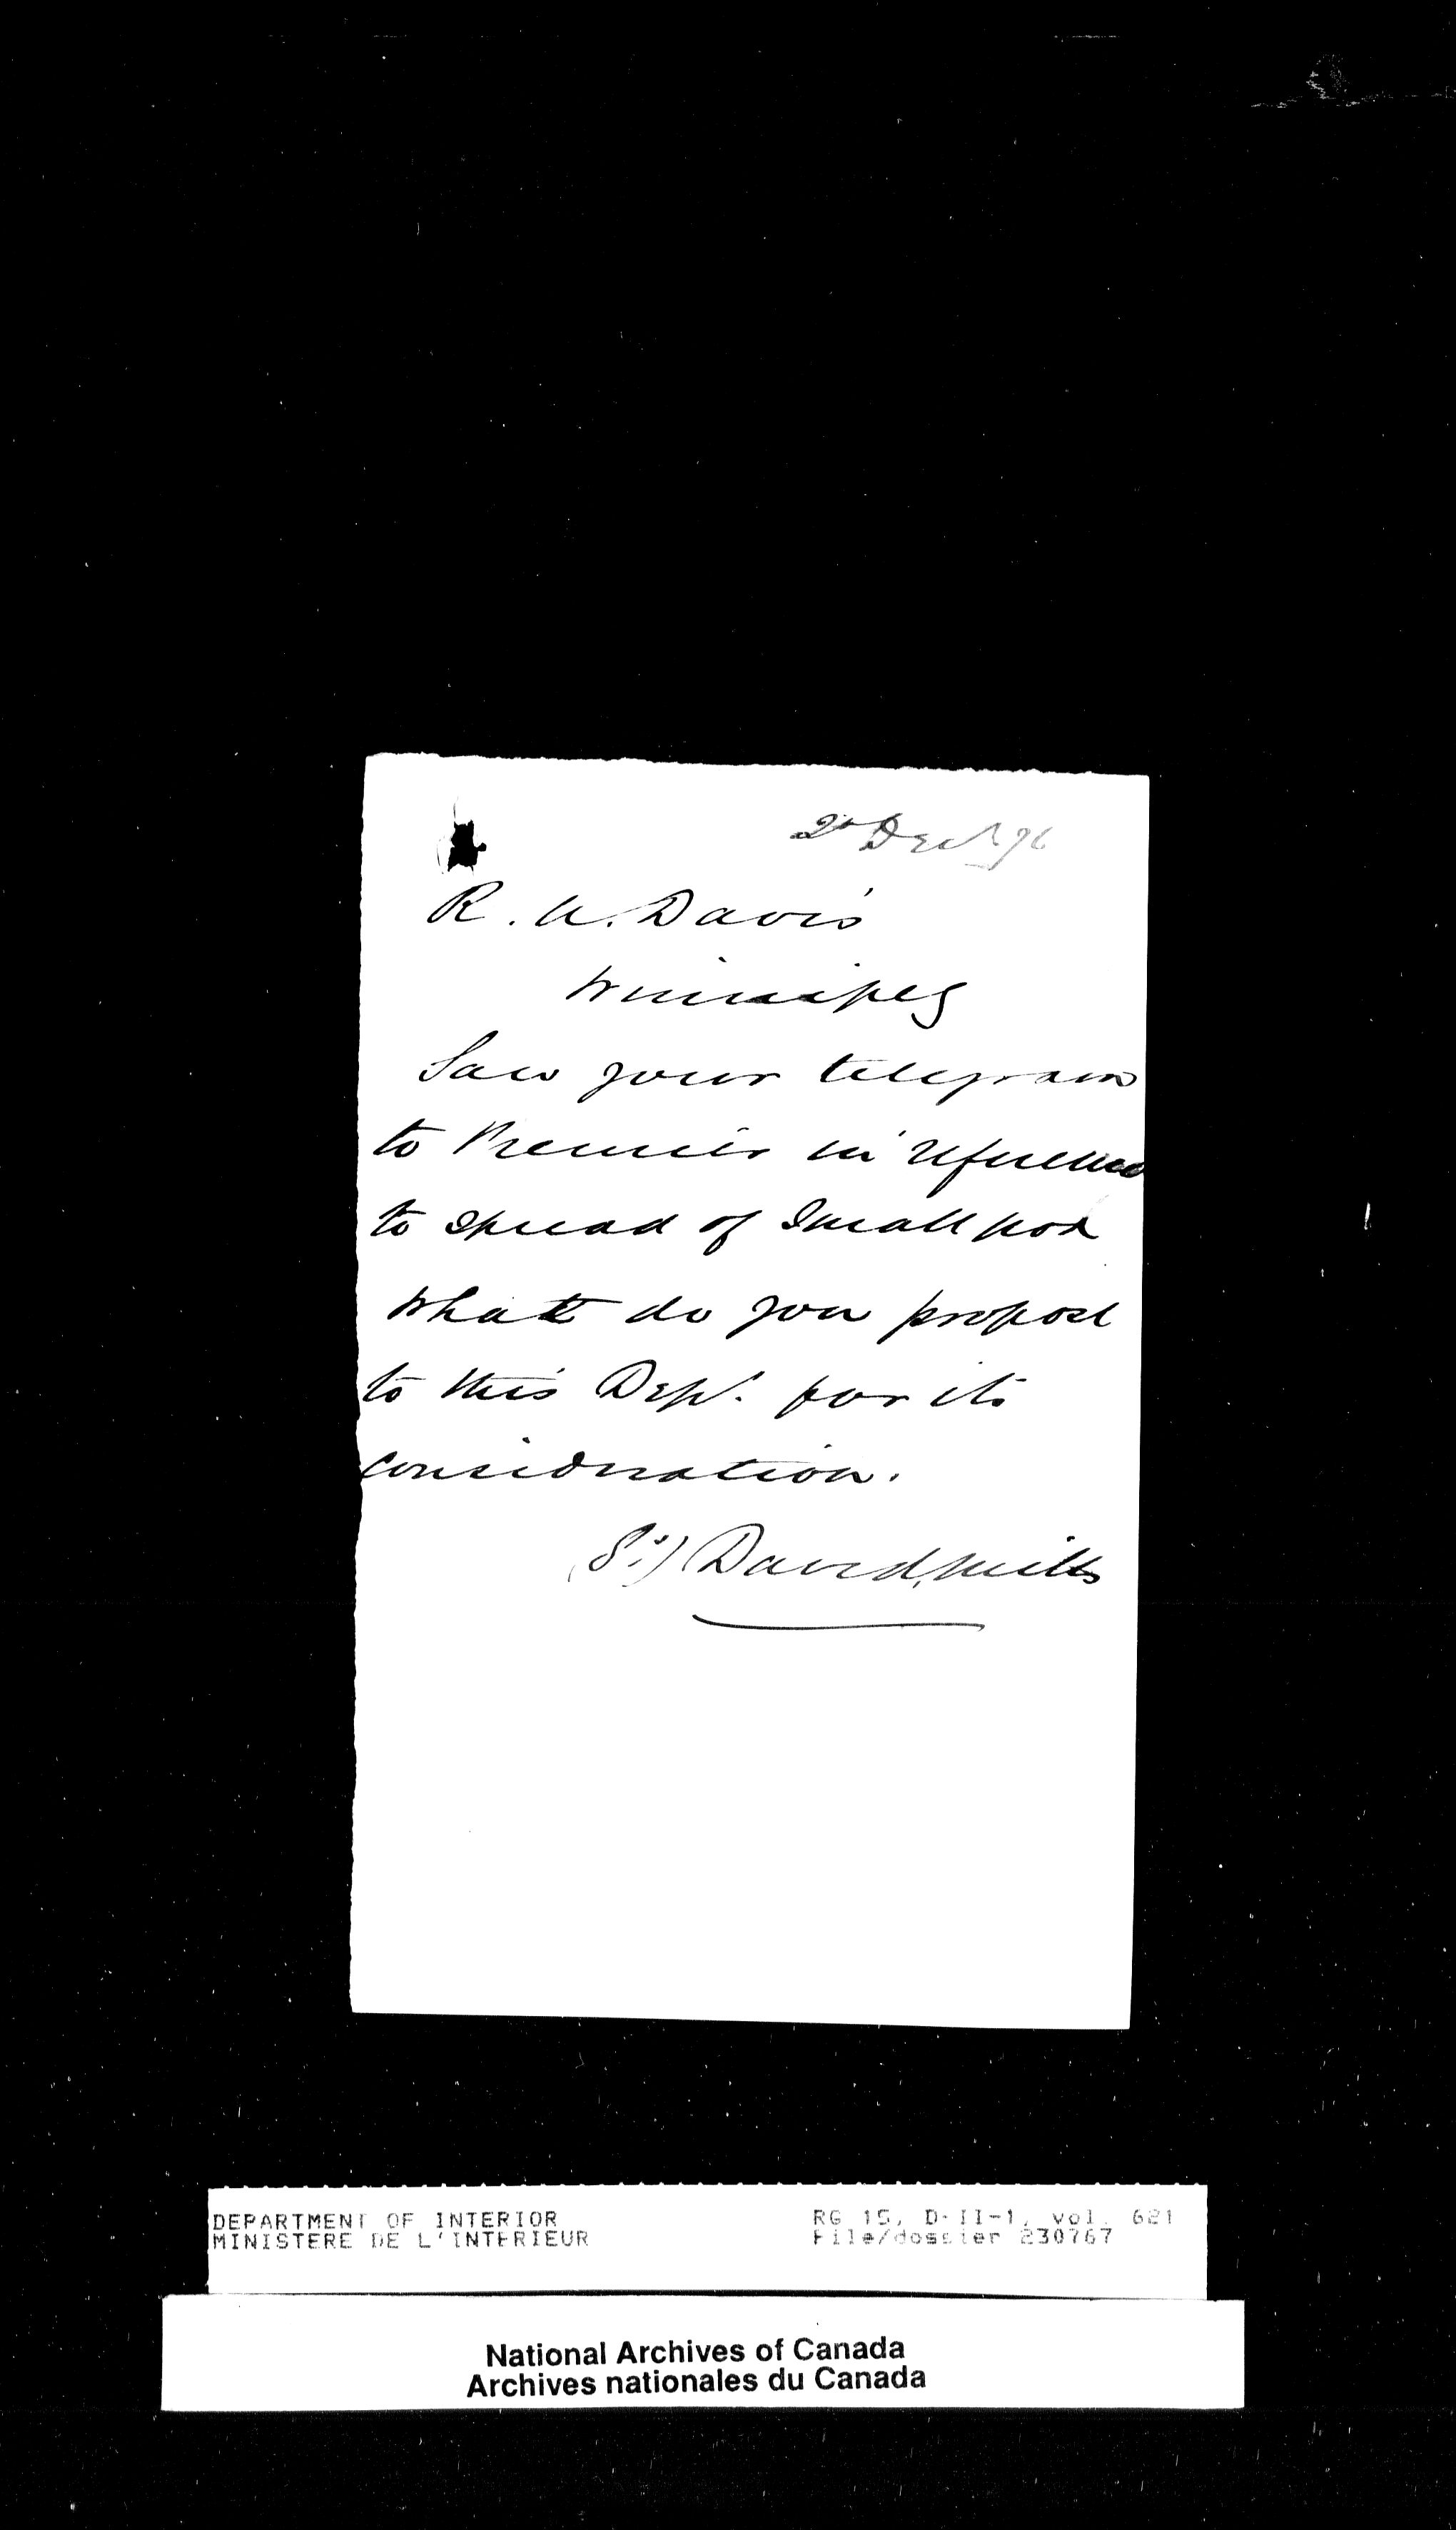 2d Decr 76
R. A. Davis
Winnipeg
Saw your telegram
to Premier in reference
to spread of Small pox
What do you propose
to this Dept. for its
consideration.
(Sd) David Mills
DEPARTMENT OF INTERIOR
MINISTERE DE L'INTERIEUR
RG 15, D-II-1, vol. 621
File/dossier 230767
National Archives of Canada
Archives nationales du Canada